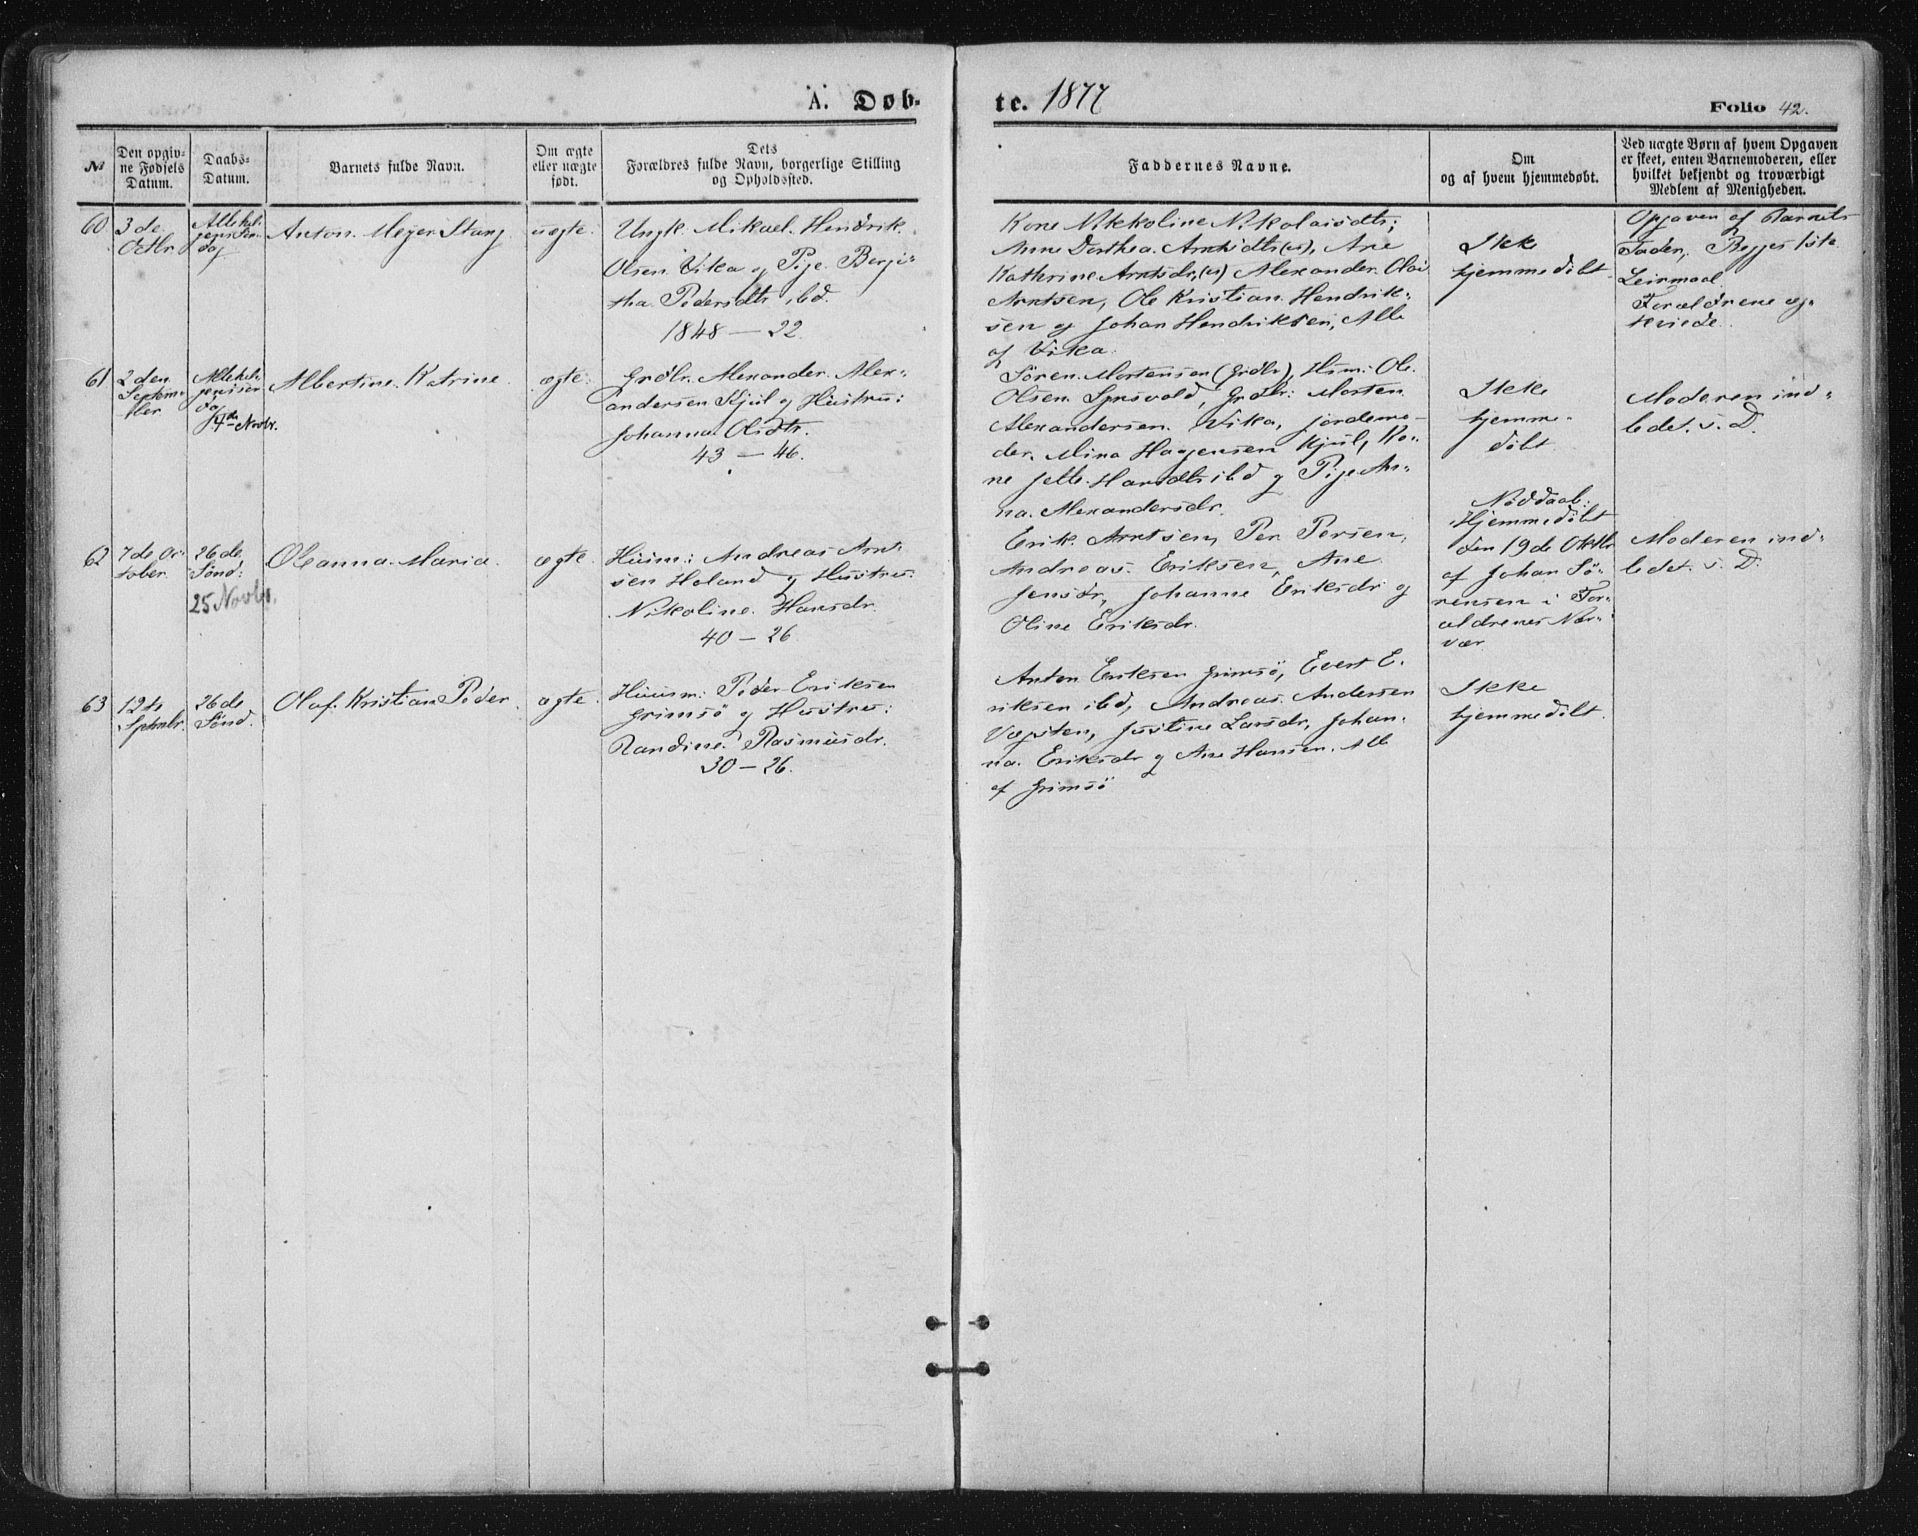 A. Døb-
te. 1877
Folio 42.
№
Den opgiv-
ne Fødsels
Datum.
Daabs-
Datum.
Barnets fulde Navn.
Om ægte
eller uægte
født.
Dets
Forældres fulde Navn, borgerlige Stilling
og Opholdssted.
Faddernes Navne.
Om
og af hvem hjemmedøbt.
Ved uægte Børn af hvem Opgaven
er skeet, enten Barnemoderen, eller
hvilket bekjendt og troværdigt
Medlem af Menigheden.
60
3 de
Octbr.
Allehel-
gens Søn-
dag
Anton. Meyer Stang
uægte.
Ungk. Mikael. Hendrik.
Olsen. Vika og Pige. Berji-
tha. Pedersdtr. ibd.
1848 — 22.
Kone Nikkoline Nikolaisdtr;
Anne Dorthea. Arntsdtr (us), Ane
Kathrine Arntsdr, (us) Alexander. Olai
Arntsen, Ole Kristian. Hendrik-
sen og Johan Hendriksen, Alle
af Vika.
Ikke
hjemmedöbt.
Opgaven af Barnets
Fader, Begges 1ste
Leirmaal
Forældrene og-
teviede.
61
2 den
Septem-
ber
Allehel-
gensSøn-
dag
4de Novbr.
Albertine. Katrine.
ægte.
Grdbr. Alexander. Alex-
andersen Kjul og Hustru:
Johanna Olsdtr.
43 — 46.
Sören. Mortensen (Grdbr), Hsm: Ole.
Olsen. , Grdbr: Morten
Alexandersen. Vika, jordemo-
der, Mina Hagensen Kjul, Ko-
ne Jelle. Hansdtr ibd og Pige An-
na. Alexandersdr.
Ikke
hjemme-
döbt.
Moderen ind-
ledet. s. D.
62
7 de Oc-
tober.
26 de
Sönd:
25 Novbr.
Oleanna. Maria.
ægte.
Huusm: Andreas Arnt-
sen Holand og Hustru:
Nikoline. Hansdr.
40 — 26.
Erik. Arntsen, Per. Persen,
Andreas Eriksen, Ane
Jensdr, Johanne Eriksdr og
Oline Eriksdr.
Nöddaab:
Hjemmedöbt
den 19 de Oktbr
af Johan Sö-
rensen i For-
ældrenes Nær-
vær.
Moderen ind-
ledet. s. D.
63
12te
Sptmbr.
26 de
Sönd.
Olaf. Kristian Peder.
ægte.
Huusm: Peder Eriksen
Grimsö og Hustru:
Randine. Rasmusdr.
30 — 26.
Anton Eriksen Grimsö, Evert E-
riksen ibd, Andreas. Andersen
, Justine Larsdr, Johan-
na. Eriksdr og Ane Hansen. Alle
af Grimsö
Ikke
hjemmedöbt.